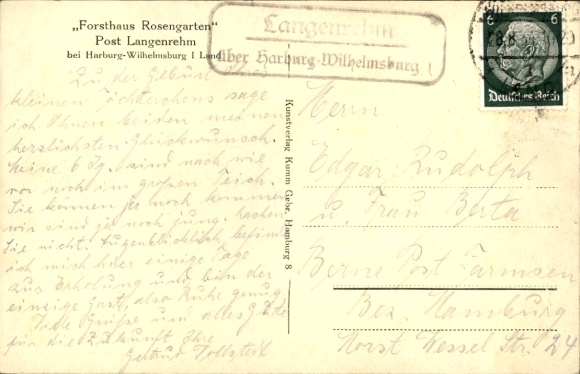 „Forsthaus Rosengarten“
Post Langenrehm
bei Harburg-Wilhelmsburg 1 Land
Langenrehm
über Harburg-Wilhelmsburg 1
6 6
Deutsches Reich
Zu der Geburt Ihres
kleinen Töchterchens sage
ich Ihnen beiden meinen
herzlichsten Glückwunsch.
Meine 6 sind nach wie
vor noch im großen Teich.
Sie können ja noch kommen
wir sind ja noch jung. Lachen
Sie nicht. Augenblicklich befinde
ich mich hier einige Tage
zur Erholung und bin der
einzige Gast, also Ruhe genug.
Viele Grüße und alles Gute
für die Zukunft Ihre
Gertrud
Kunstverlag Kumm Gebr. Hamburg 8
Herrn
Edgar Rudolph
u. Frau Berta
Berne Post Farmsen
Bez. Hamburg
Horst Wessel Str. 24